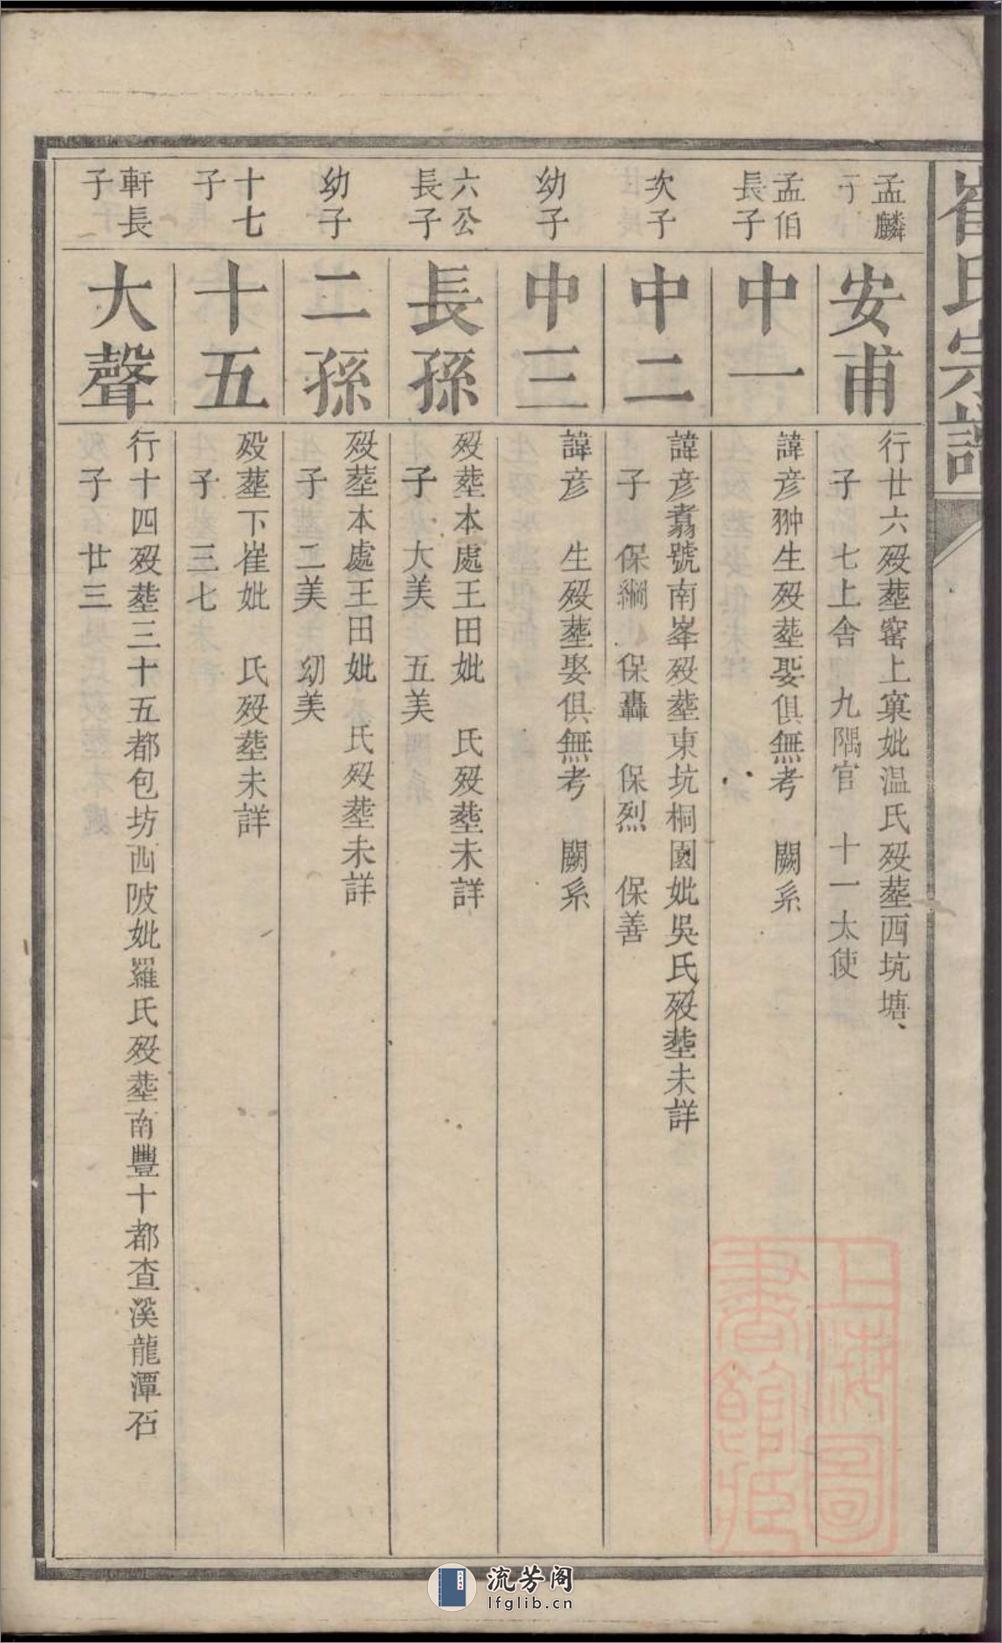 崔氏宗譜
孟麟
子
安甫
行廿六歿塟窰上窠妣温氏歿塟西坑塘
子 七上舎 九隅官 十一太使
孟伯
長子
中一
諱彦翀生歿塟娶俱無考 闕系
次子
中二
諱彦翥號南峯歿塟東坑桐園妣吳氏歿塟未詳
子 保綱 保轟 保烈 保善
幼子
中三
諱彦 生歿塟娶俱無考 闕系
六公
長子
長孫
歿塟本處王田妣 氏歿塟未詳
子 大美 五美
幼子
二孫
歿塟本處王田妣 氏歿塟未詳
子 二美 幼美
十七
子
十五
歿塟下崔妣 氏歿塟未詳
子 三七
軒長
子
大聲
行十四歿塟三十五都包坊西陂妣羅氏歿塟南豐十都查溪龍潭石
子 廿三
上海圖
書館藏
流芳阁
lfglib.cn